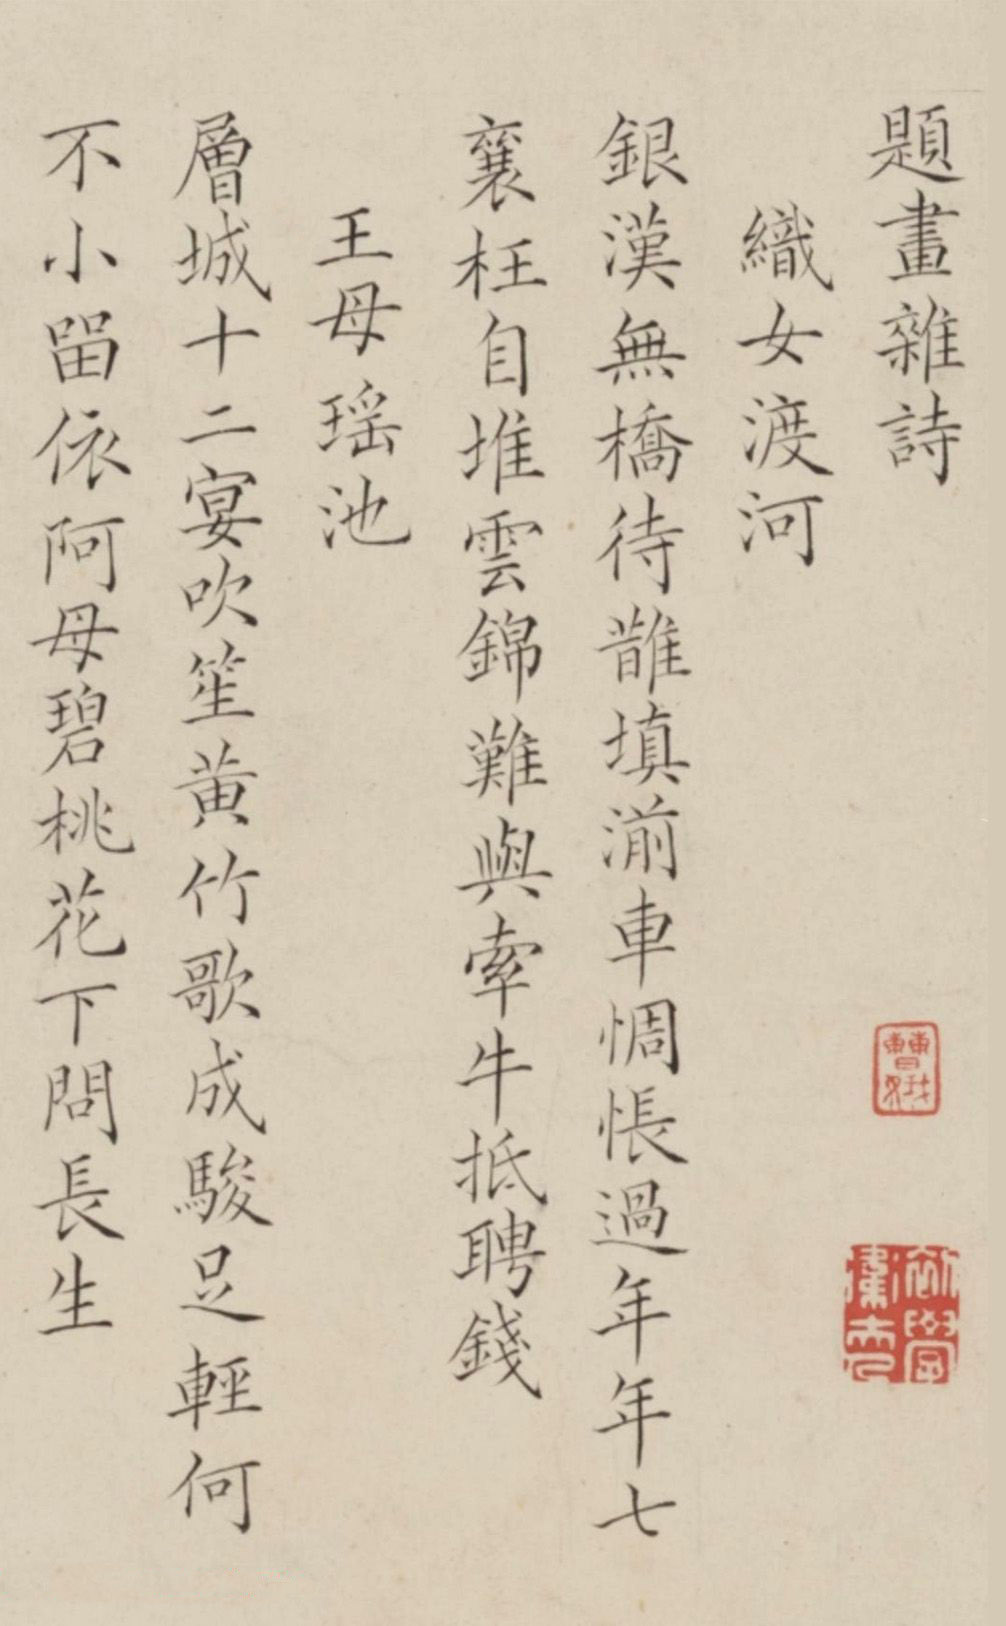 題畫雜詩
織女渡河
銀漢無橋待鵲填湔車惆悵過年年七
襄枉自堆雲錦難與牽牛抵聘錢
王母瑶池
層城十二宴吹笙黄竹歌成駿足輕何
不小留依阿母碧桃花下問長生